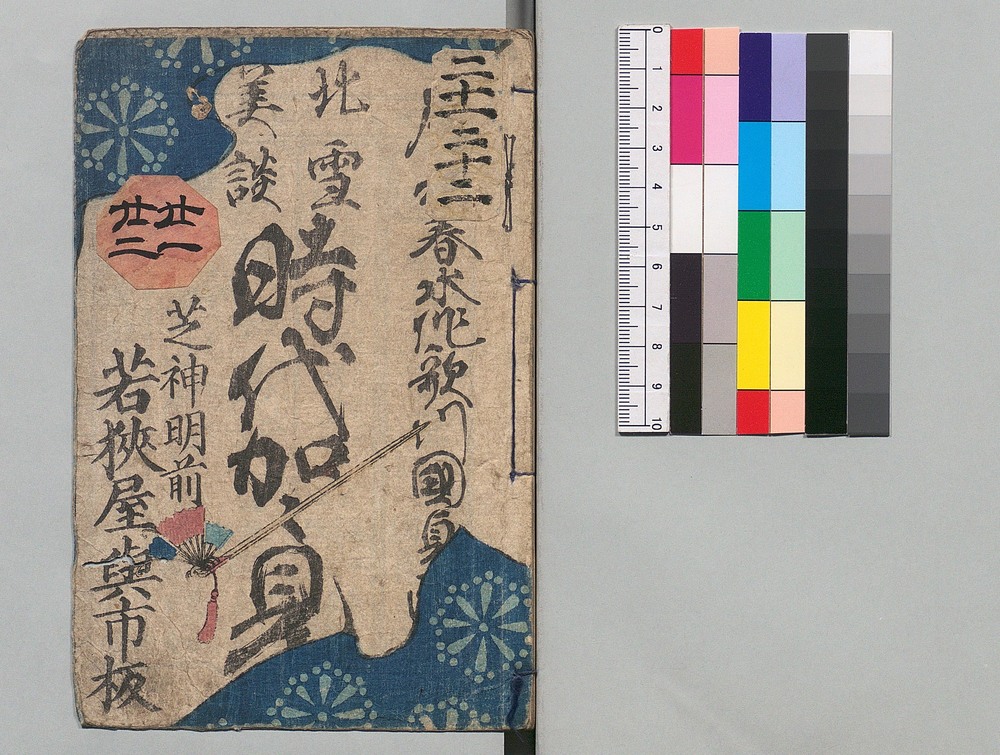 二十一
二十二
春水作
歌川國貞
北雪
美談
時代加々身
廿一
廿二
芝神明前
若狹屋與市板
0
1
2
3
4
5
6
7
8
9
10